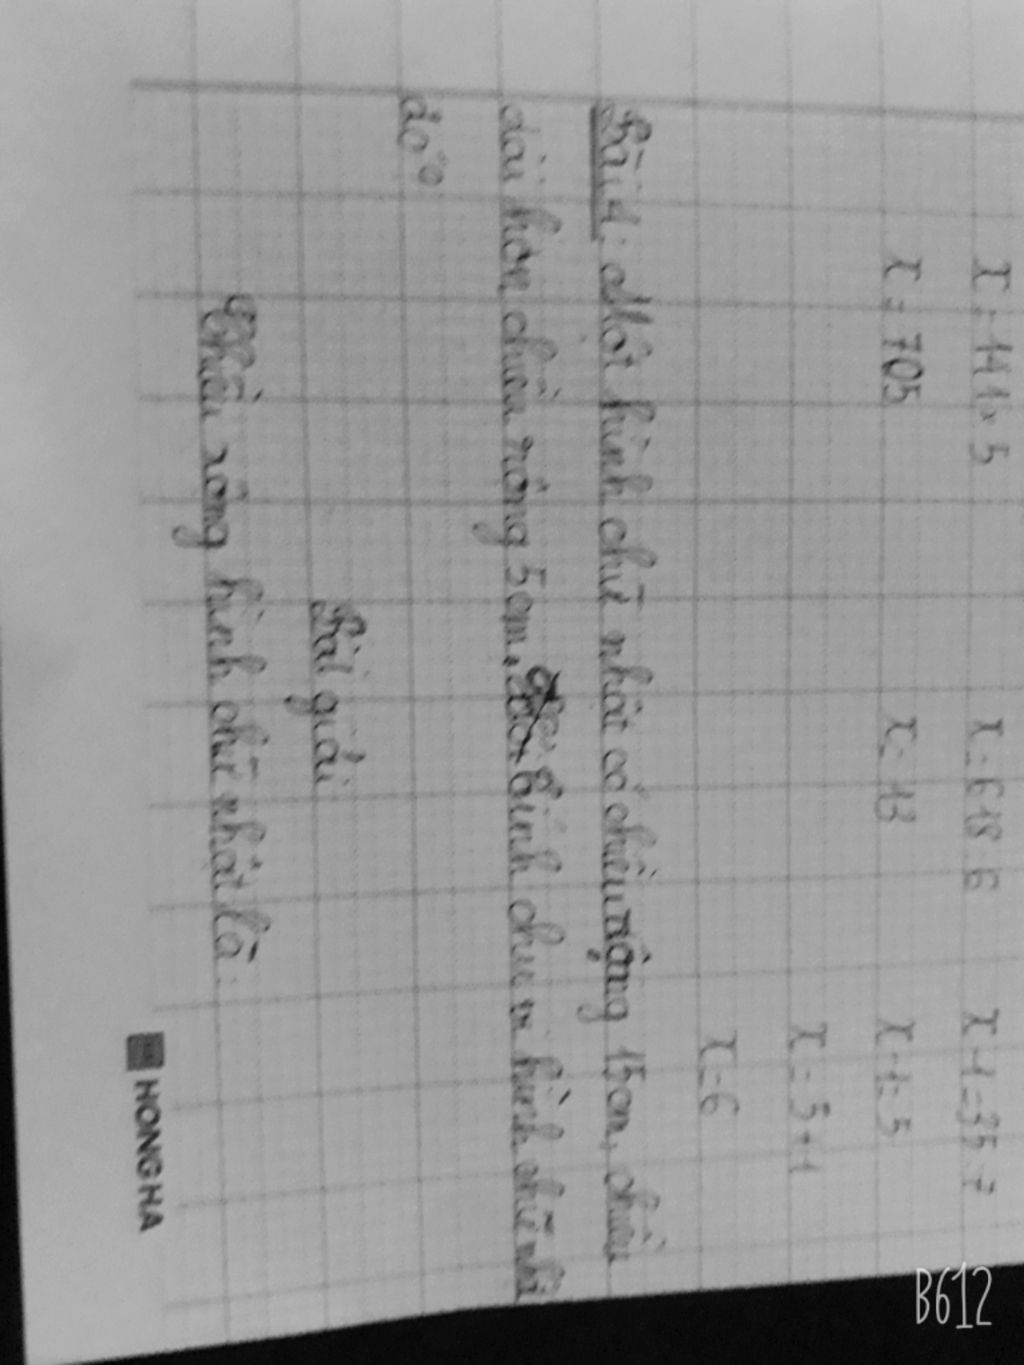 x = 141 x 5
x = 618 : 6
x - 1 = 35 : 7
x = 705
x = 13
x - 1 = 5
x = 5 + 1
x = 6
Bài 4: Một hình chữ nhật có chiều rộng 15cm, chiều
dài hơn chiều rông 5cm. Tính chu vi hình chữ nhâ
đó?
Bài giải
Chiều rông hình chữ nhât là:
HONG HA
B612